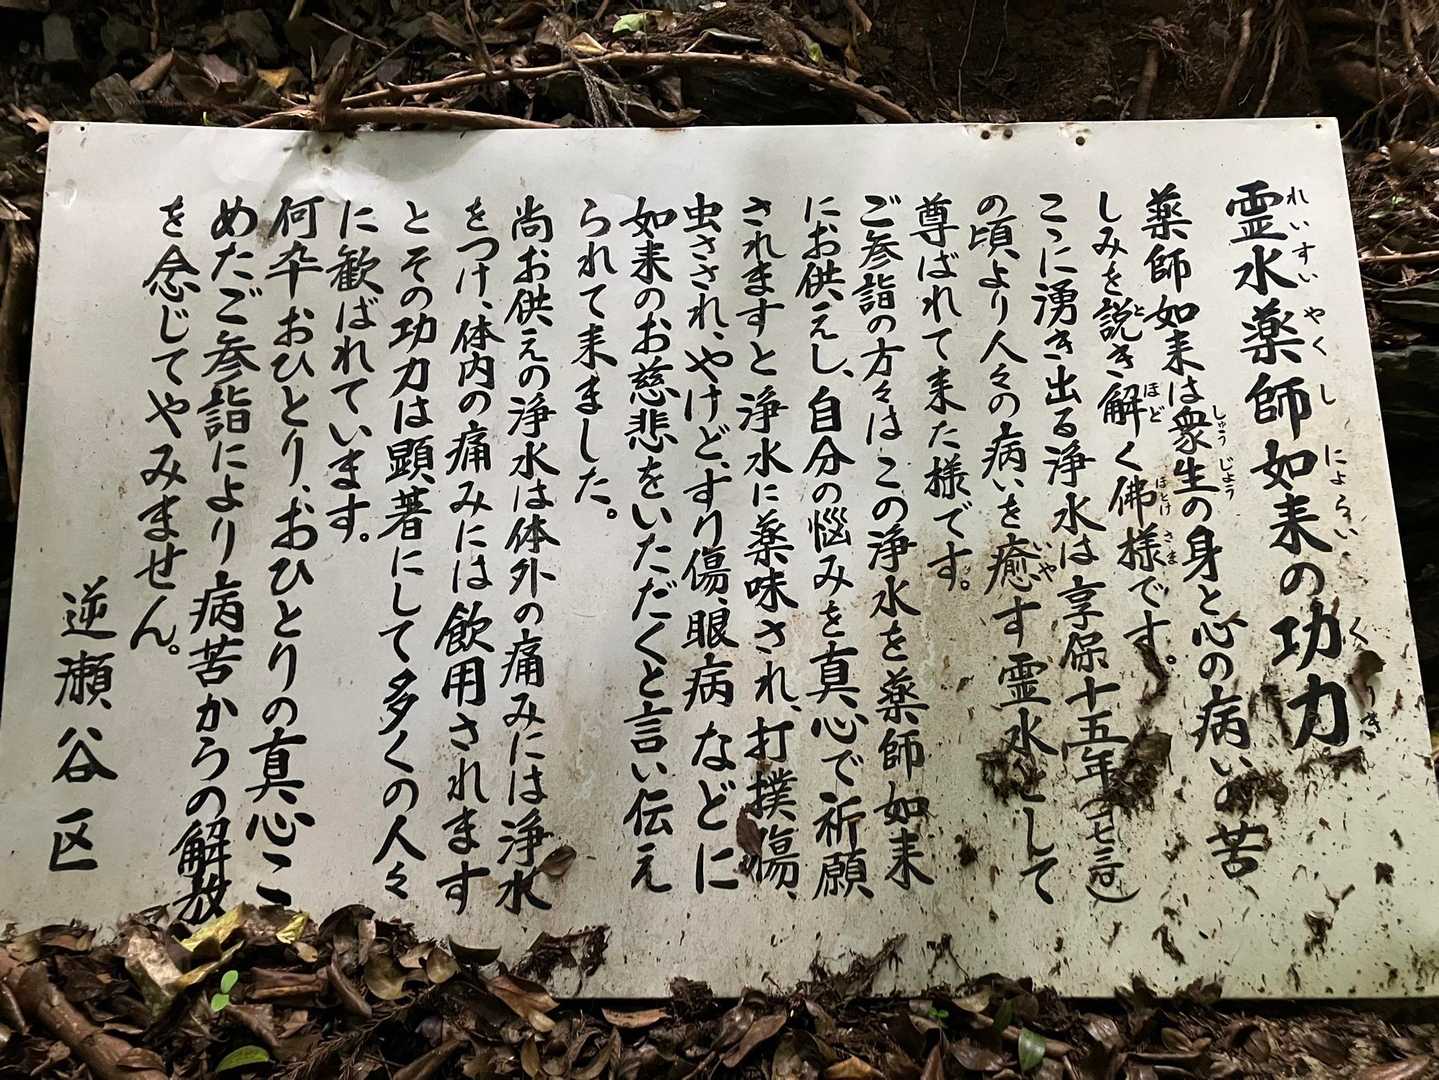 霊水薬師如来の功力
れいすいやくしにょらいくりき
薬師如来は衆生の身と心の病いの苦
しゅうじょう
しみを説き解く佛様です。
とほどほとけさま
こゝに湧き出る浄水は享保十五年(一七三〇)
の頃より人々の病いを癒す霊水として
いや
尊ばれて来た様です。
ご参詣の方々はこの浄水を薬師如来
にお供えし、自分の悩みを真心で祈願
されますと浄水に薬味され、打撲傷、
虫さされ、やけど、すり傷、眼病などに
如来のお慈悲をいただくと言い伝え
られて来ました。
尚お供えの浄水は体外の痛みには浄水
をつけ、体内の痛みには飲用されます
とその功力は顕著にして多くの人々
に歓ばれています。
何卒おひとり、おひとりの真心こ
めたご参詣により病苦からの解放
を念じてやみません。
逆瀬谷区